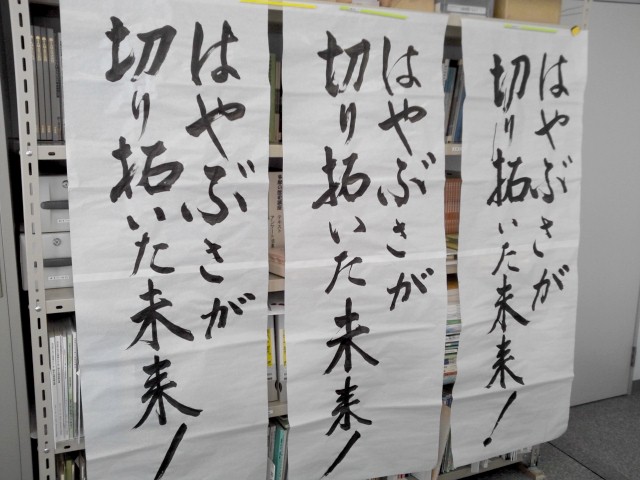 はやぶさが
切り拓いた未来！
はやぶさが
切り拓いた未来！
はやぶさが
切り拓いた未来！